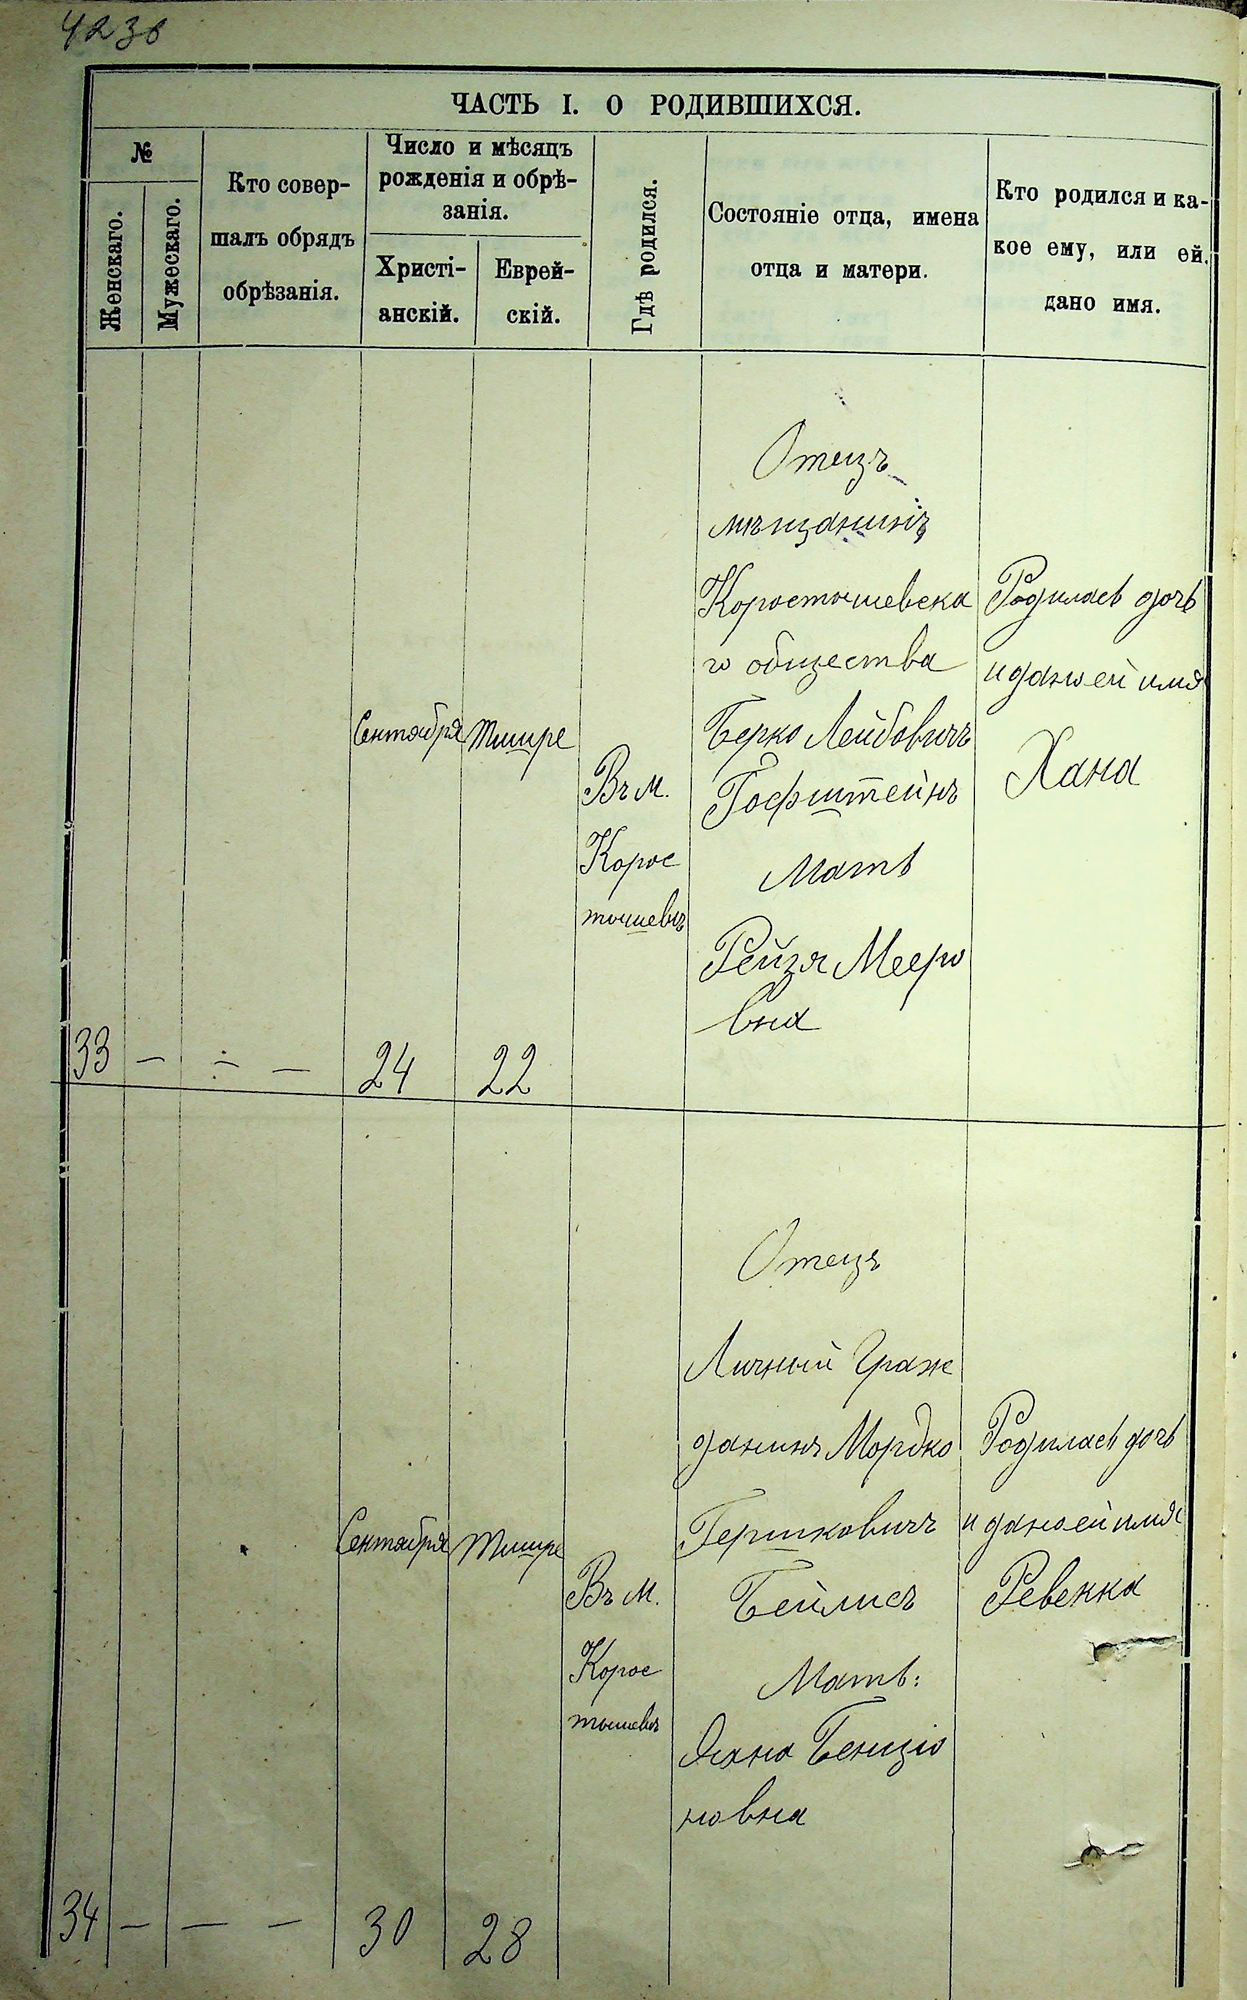 423об
ЧАСТЬ I. О РОДИВШИХСЯ.
№
Женскаго.
Мужескаго.
Кто совер-
шалъ обрядъ
обрѣзанія.
Число и мѣсяцъ
рожденія и обрѣ-
занія.
Христі-
анскій.
Еврей-
скій.
Гдѣ родился.
Состояніе отца, имена
отца и матери.
Кто родился и ка-
кое ему, или ей,
дано имя.
33
— — —
Сентября
24
Тишре
22
Въ м.
Корос
тышевъ
Отецъ
мѣщанинъ
Коростышевска
го общества
Берко Лейбовичъ
Гофштейнъ
Мать
Рейзя Мееро
вна
Родилась дочь
и дано ей имя
Хана
34
— — —
Сентября
30
Тишре
28
Въ м.
Корос
тышевъ
Отецъ
Личный Граж
данинъ Мордко
Гершковичъ
Бейлисъ
Мать:
Бенціо
новна
Родилась дочь
и дано ей имя
Ревекка